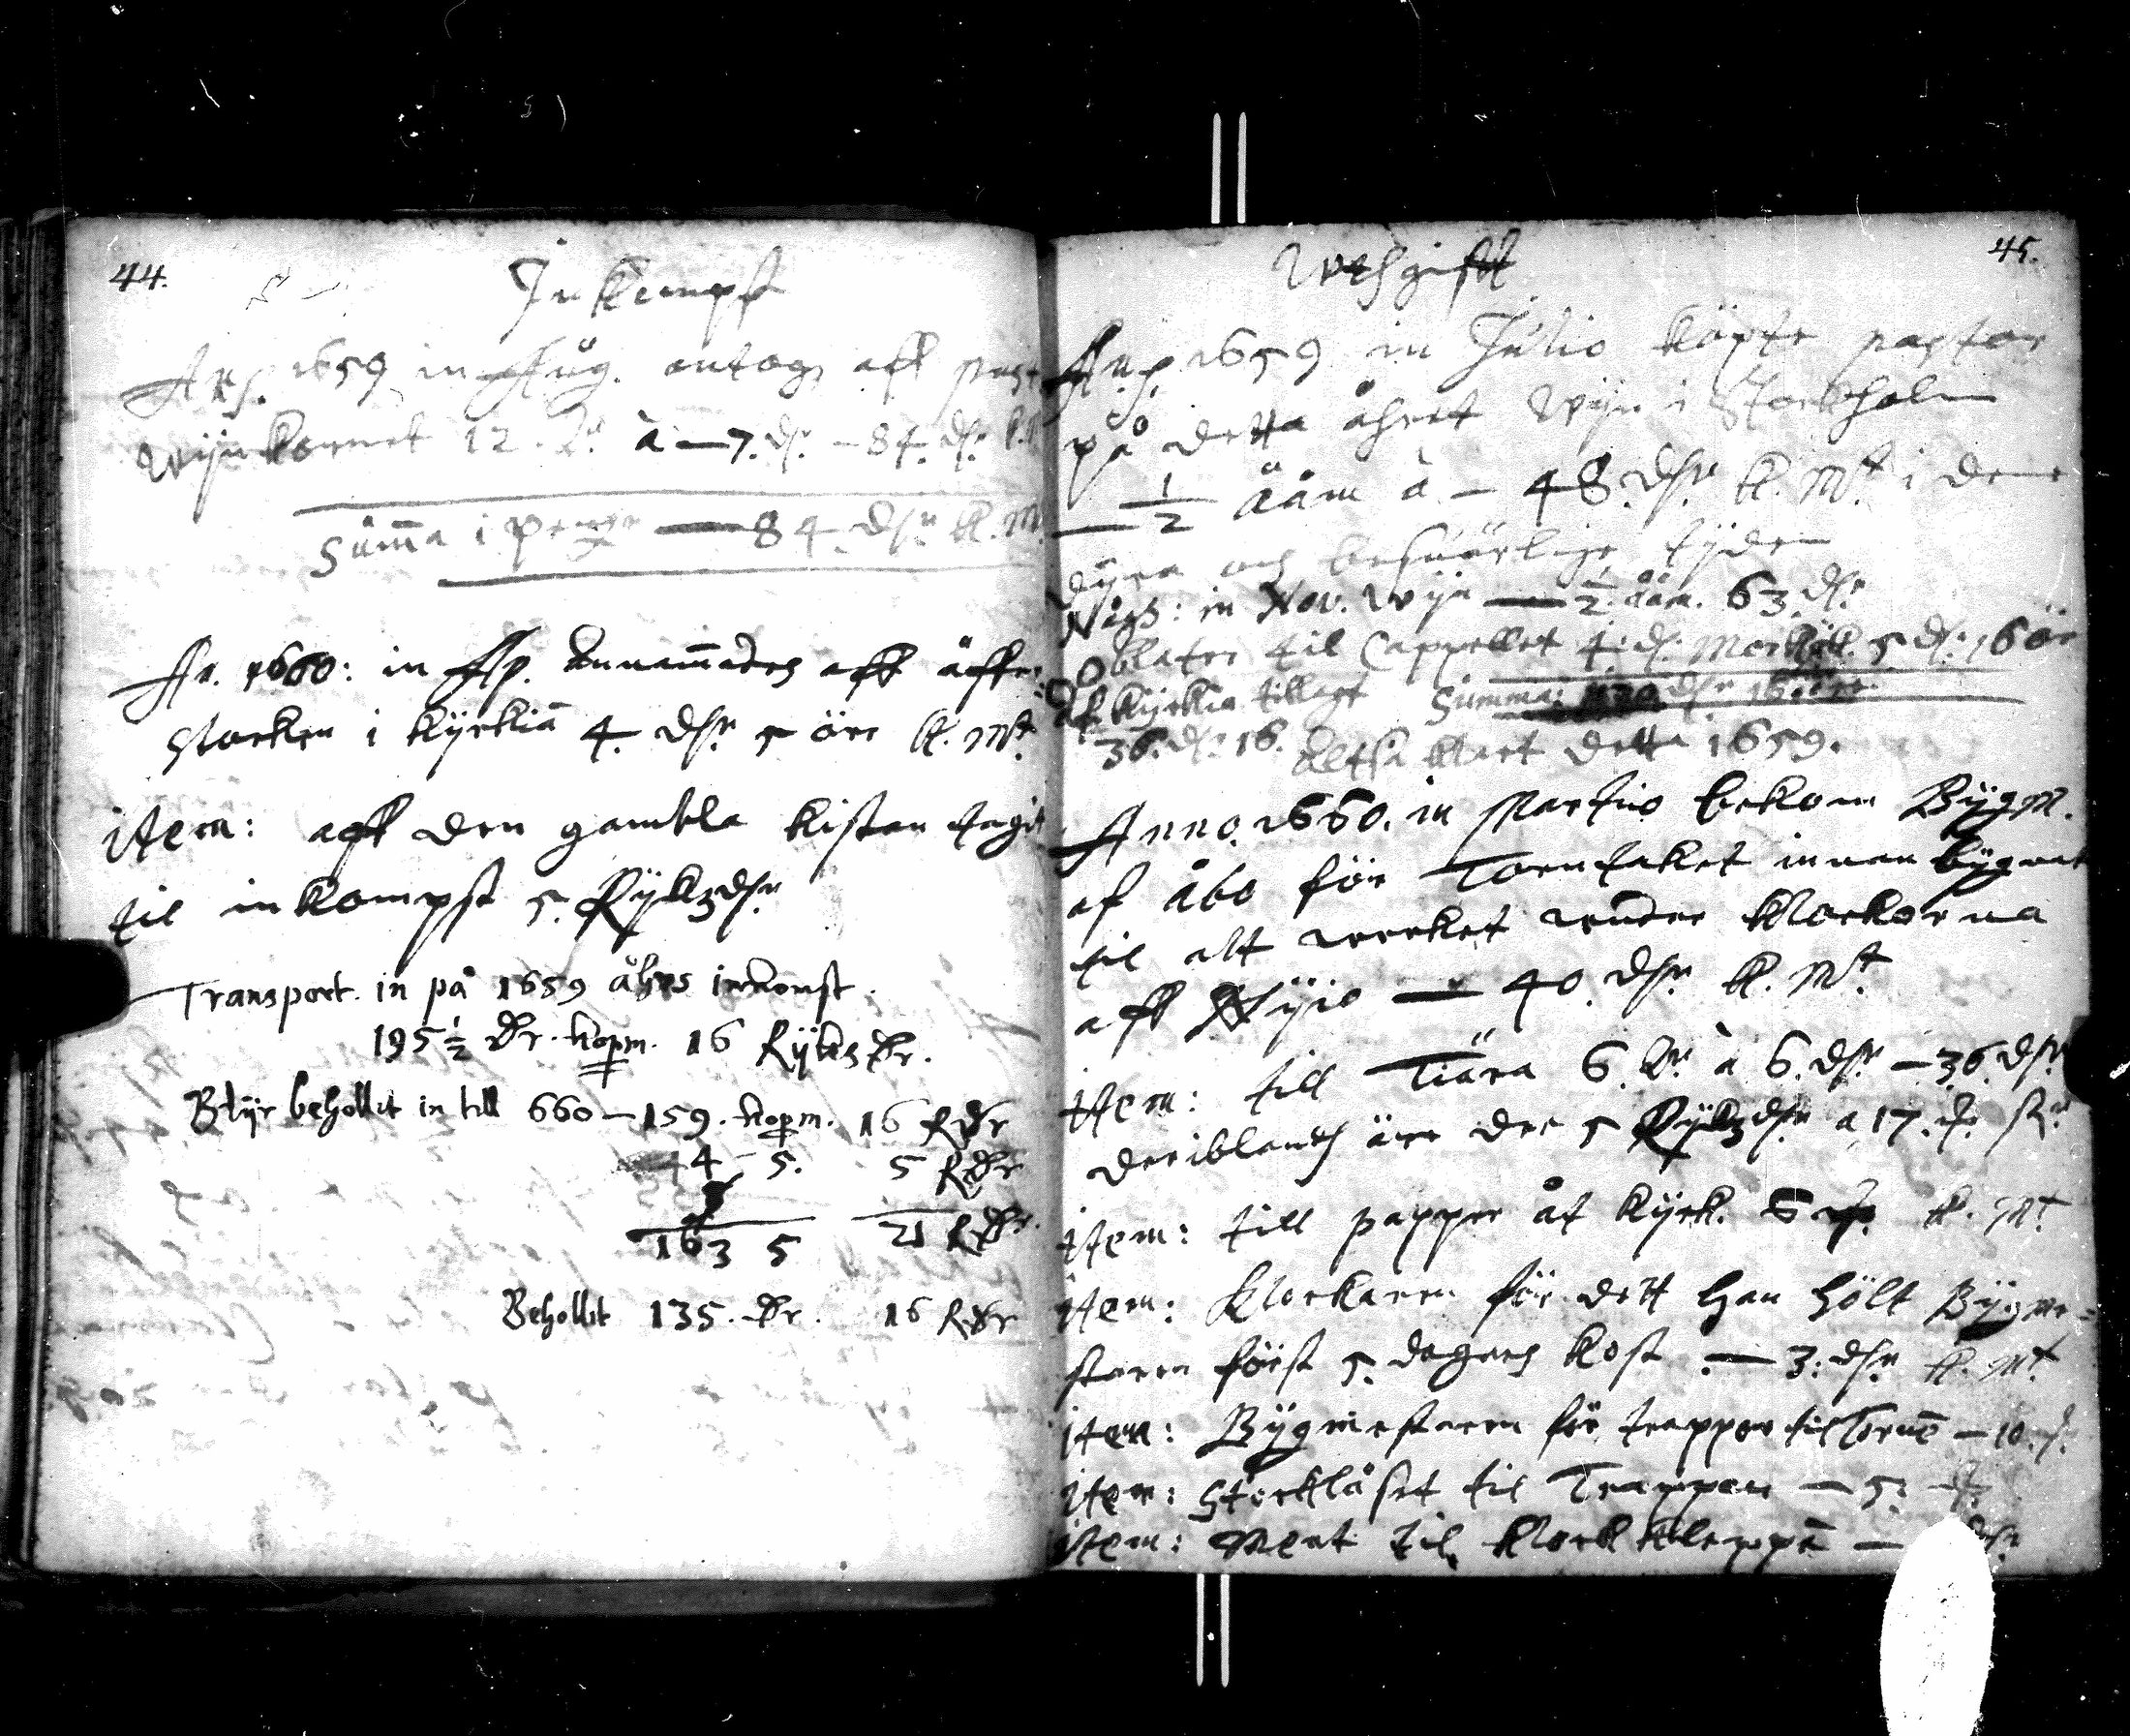 44.
Inkompst
Ao. 1659 in Aug. antogs aff past
wijnkornet 12. à — 7. dr. — 84. dr. k.
Summa i penge — 84. dr. k. M
An. 1660: in Ap. annammades aff
stocken i kyrkian 4. dr. 5 öre k. Mt
item: aff den gambla kistan
til inkompst 5. Ryksdr
Transport in på 1659 åhrs inkomst.
195 ½ Dr. kopm. 16 Rÿks Dr.
Blyr behollit in till 660 — 159. kopm. 16 RDr
4 5. 5 RDr
163 5 21 RDr.
Behollit 135. Dr. 16 RDr
45.
Uthgifft
Ao. 1659 in Julio köpte pastor
på detta åhret wijn i Stockholm
— ½ ååm à — 48. dr. k. Mt i denne
dyra och besuärlige tyden
in Nov. wijn — ½ ååm. 63. dr
Oblater til Cappellet 4. dr. 5 dr. 16 ör
kyrkia tillagt Summa: dr 16 öre
36. dr. 16. Altså klart detta 1659.
Anno. 1660. in Martio bekom Bygm.
af åbo för Torntaket innan bygnat
til alt werket under klockorna
aff — 40. dr. k. Mt
item: till Tiära 6. à 6. dr — 36. dr
deriblandh äre de 5 Ryksdr a 17.
item: till papper åt kyrk. 6 k. Mt
item: klockaren för dett han hölt Bygme=
staren först 5. dagars kost. — 3. dr k. Mt
item: Bygmestaren för trappor til Torne — 10.
item: Stocklåset til Trappan — 5.
item: til klockkleppe —